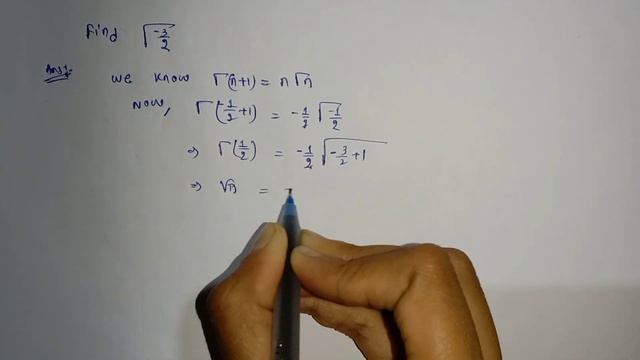 Find Γ-3/2
Ans:- We know Γ(n+1) = n Γn
Now, Γ(-1/2+1) = -1/2 Γ-1/2
⇒ Γ(1/2) = -1/2 Γ-3/2+1
⇒ √π = -